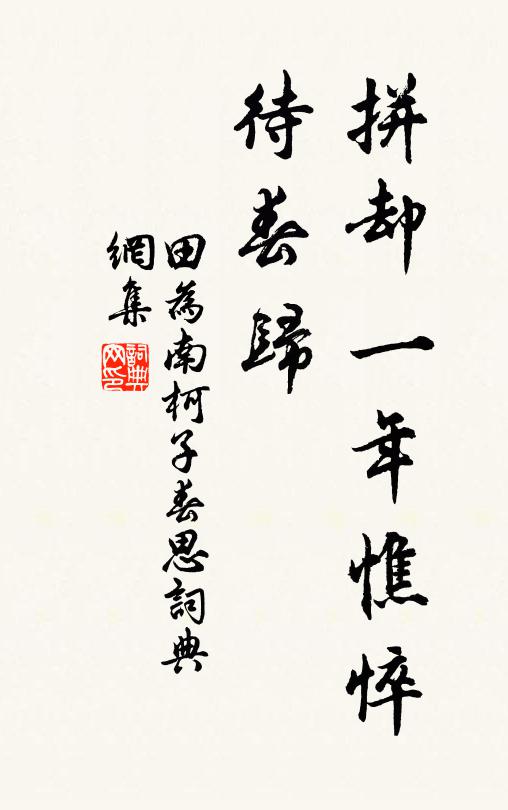 拼却一年憔悴
待春歸
田為南柯子春思詞典
網集
詞典
网印